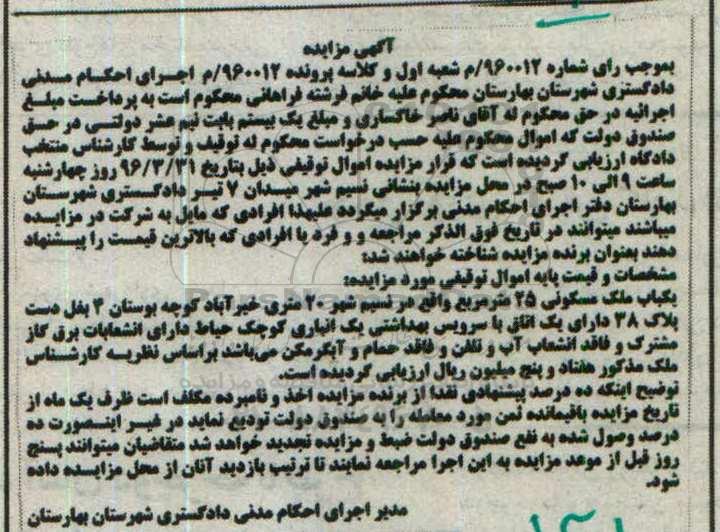 آگهی مزایده
بموجب رای شماره ۹۶۰۰۱۲/م شعبه اول و کلاسه پرونده ۹۶۰۰۱۲/م اجرای احکام مدنی
دادگستری شهرستان بهارستان محکوم علیه خانم فرشته فراهانی محکوم است به پرداخت مبلغ
اجرائیه در حق محکوم له آقای ناصر خاگساری و مبلغ یک بیستم بابت نیم عشر دولتی در حق
صندوق دولت که اموال محکوم علیه حسب درخواست محکوم له توقیف و توسط کارشناس منتخب
دادگاه ارزیابی گردیده است که قرار مزایده اموال توقیفی ذیل بتاریخ ۹۶/۳/۳۱ روز چهارشنبه
ساعت ۹ الی ۱۰ صبح در محل مزایده بنشانی نسیم شهر میدان ۷ تیر دادگستری شهرستان
بهارستان دفتر اجرای احکام مدنی برگزار میگردد علیهذا افرادی که مایل به شرکت در مزایده
میباشند میتوانند در تاریخ فوق الذکر مراجعه و و فرد یا افرادی که بالاترین قیمت را پیشنهاد
دهند بعنوان برنده مزایده شناخته خواهند شد:
مشخصات و قیمت پایه اموال توقیفی مورد مزایده:
یکباب ملک مسکونی ۲۵ مترمربع واقع در نسیم شهر ۲۰ متری خیرآباد کوچه بوستان ۳ بغل دست
پلاک ۳۸ دارای یک اتاق با سرویس بهداشتی یک انباری کوچک حیاط دارای انشعابات برق گاز
مشترک و فاقد انشعاب آب و تلفن و فاقد حمام و آبگرمکن می‌باشد براساس نظریه کارشناس
ملک مذکور هفتاد و پنج میلیون ریال ارزیابی گردیده است.
توضیح اینکه ده درصد پیشنهادی نقدا از برنده مزایده اخذ و نامبرده مکلف است ظرف یک ماه از
تاریخ مزایده باقیمانده ثمن مورد معامله را به صندوق دولت تودیع نماید در غیر اینصورت ده
درصد وصول شده به نفع صندوق دولت ضبط و مزایده تجدید خواهد شد متقاضیان میتوانند پنج
روز قبل از موعد مزایده به این اجرا مراجعه نمایند تا ترتیب بازدید آنان از محل مزایده داده
شود.
مدیر اجرای احکام مدنی دادگستری شهرستان بهارستان